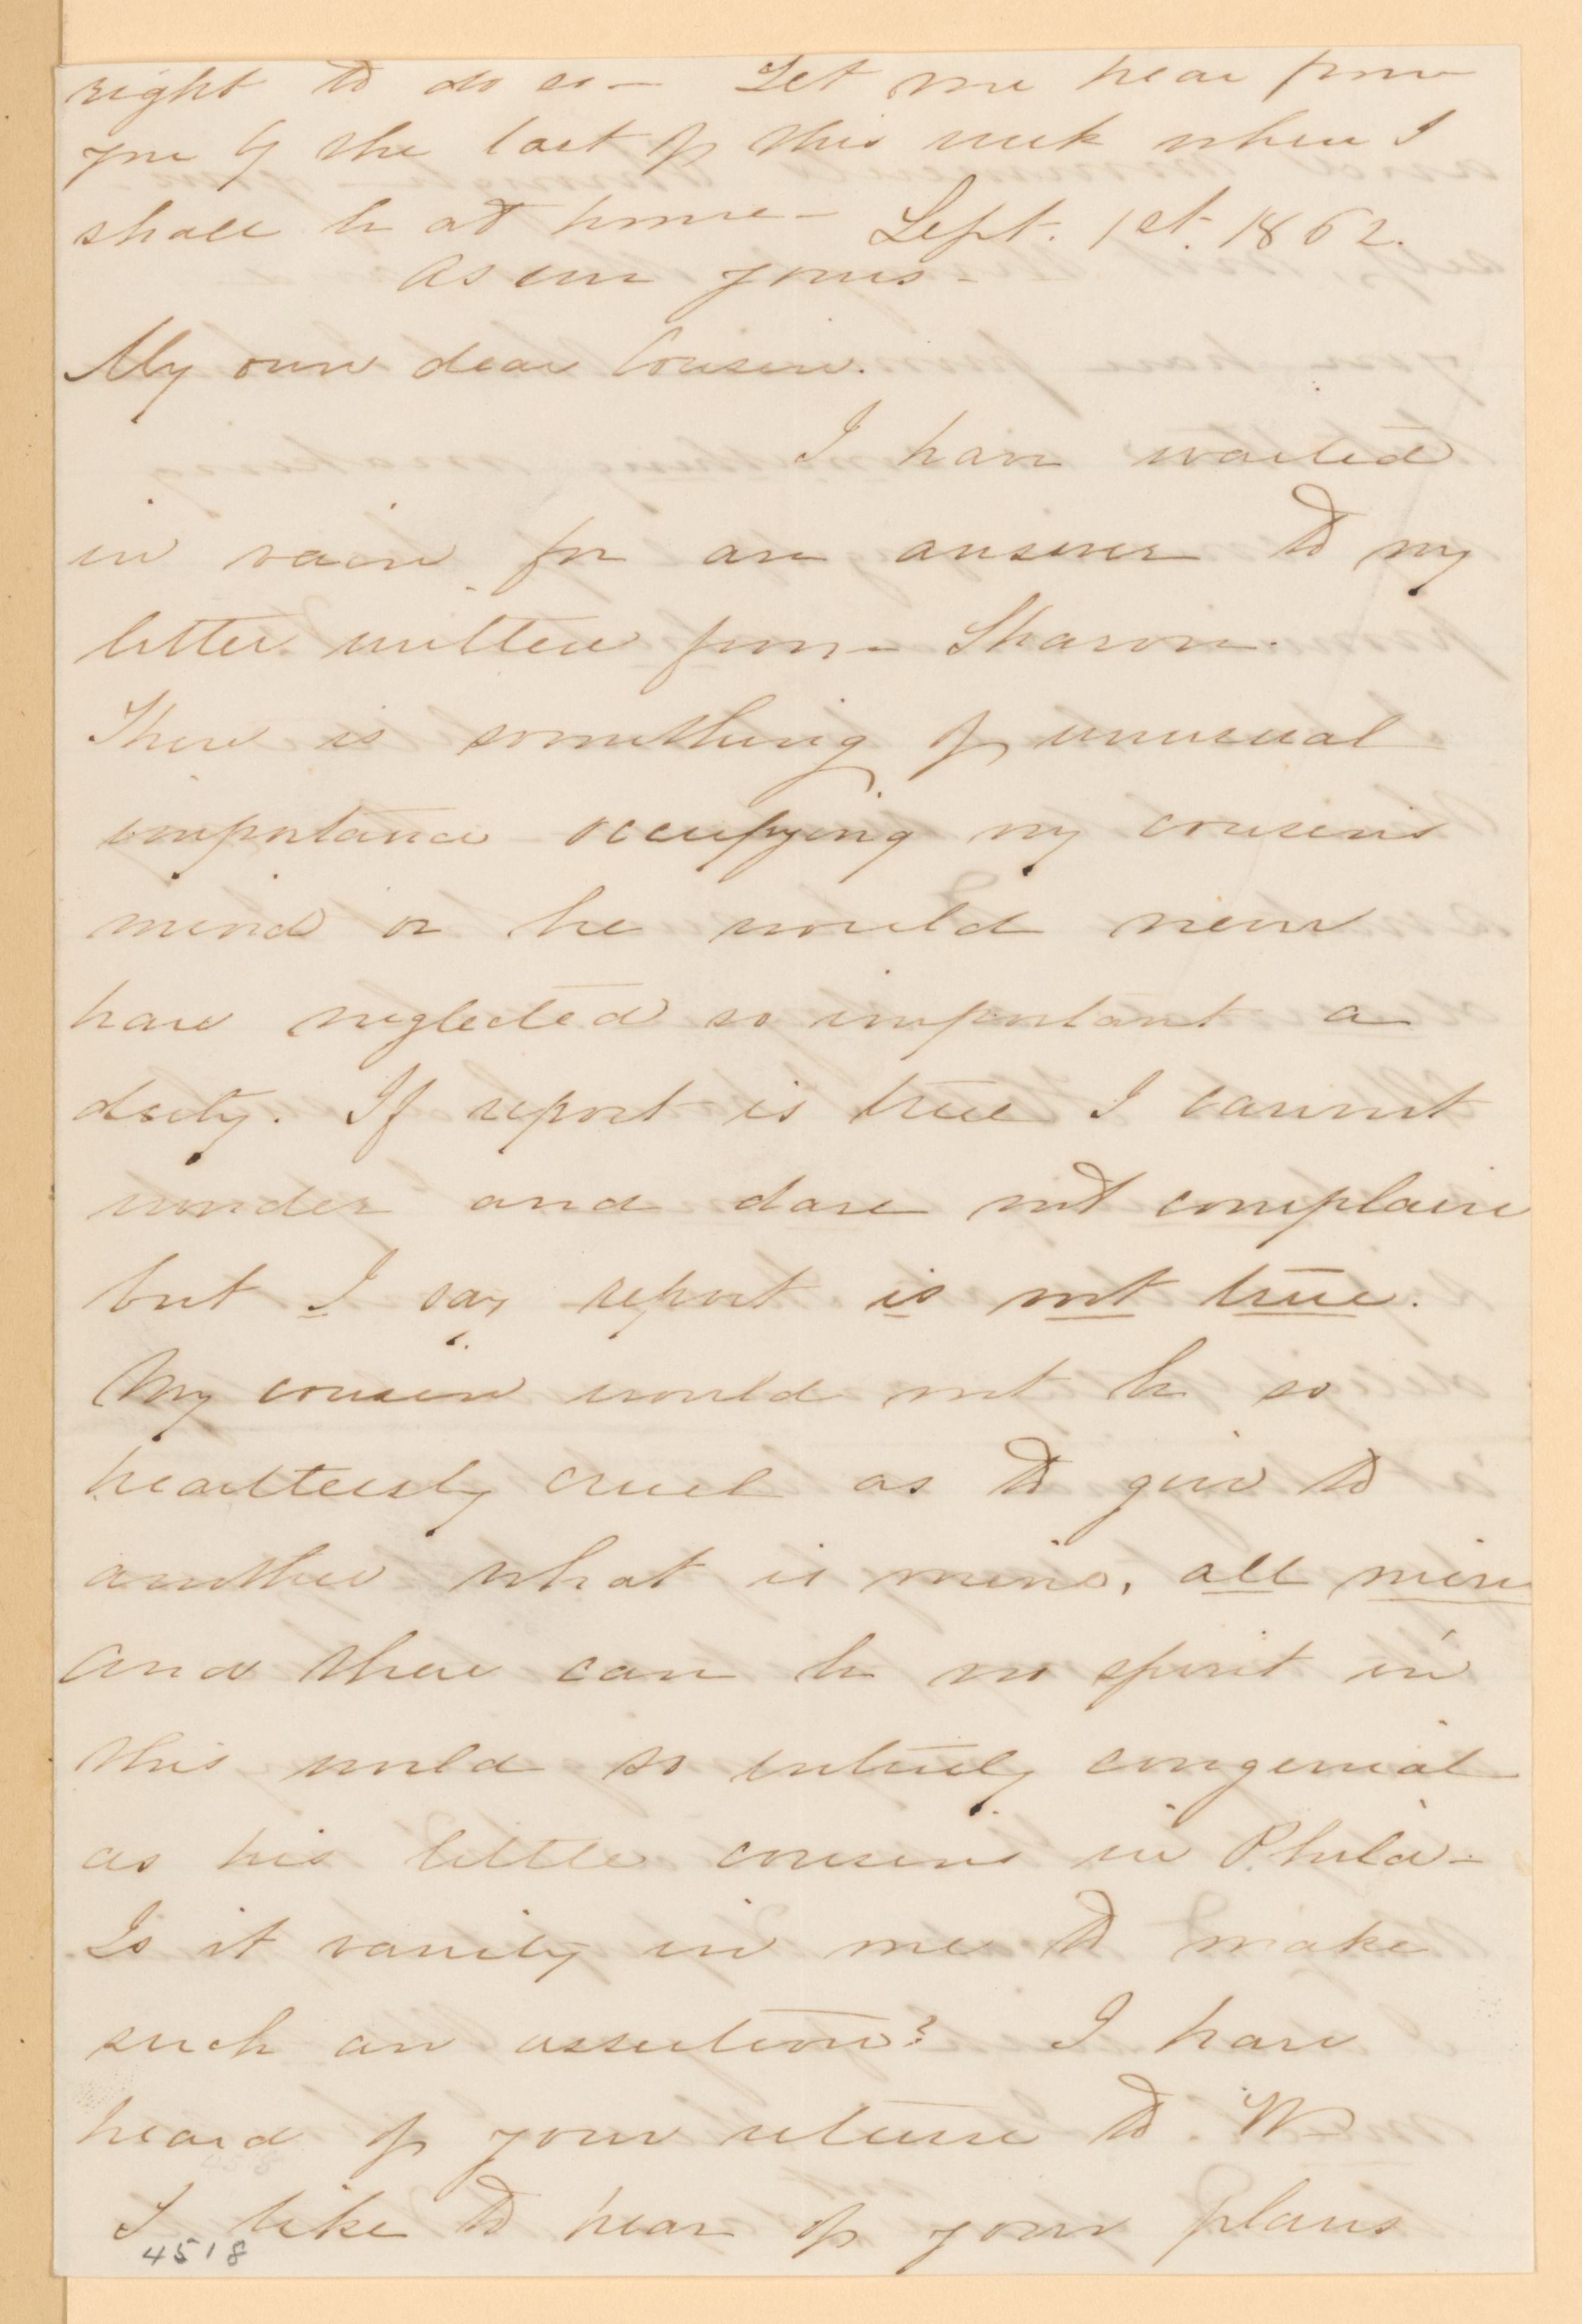 right to do so — Let me hear from
you by the last of this week when I
shall be at home — Sept. 1st. 1862.
As ever yours —
My own dear Cousin.
I have waited
in vain for an answer to my
letter written from Sharon.
There is something of unusual
importance occupying my cousin's
mind or he would never
have neglected so important a
duty. If report is true I cannot
wonder and dare not complain
but I say report is not true.
My cousin would not be so
heartlessly cruel as to give to
another what is mine, all mine
and there can be no spirit in
this world so entirely congenial
as his little cousins in Phila —
Is it vanity in me to make
such an assertion? I have
heard of your return to W—
I like to hear of your plans
4518